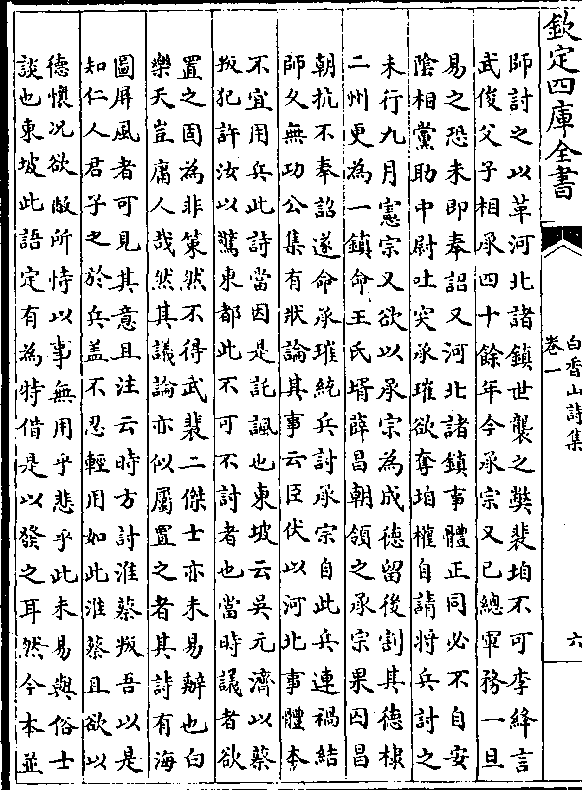 欽定四庫全書
白香山詩集
卷一
六
師討之以革河北諸鎮世襲之弊裴垍不可李絳言
武俊父子相承四十餘年今承宗又已總軍務一旦
易之恐未即奉詔又河北諸鎮事體正同必不自安
陰相黨助中尉吐突承璀欲奪垍權自請將兵討之
未行九月憲宗又欲以承宗為成德留後割其德棣
二州更為一鎮命王氏壻薛昌朝領之承宗果囚昌
朝抗不奉詔遂命承璀統兵討承宗自此兵連禍結
師久無功公集有狀論其事云臣伏以河北事體本
不宜用兵此詩當因是託諷也東坡云吳元濟以蔡
叛犯許汝以驚東都此不可不討者也當時議者欲
置之固為非策然不得武裴二傑士亦未易辦也白
樂天豈庸人哉然其議論亦似屬置之者其詩有海
圖屏風者可見其意且注云時方討淮蔡叛吾以是
知仁人君子之於兵盖不忍輕用如此淮蔡且欲以
德懷况欲敝所恃以事無用乎悲乎此未易與俗士
談也東坡此語定有為特借是以發之耳然今本並